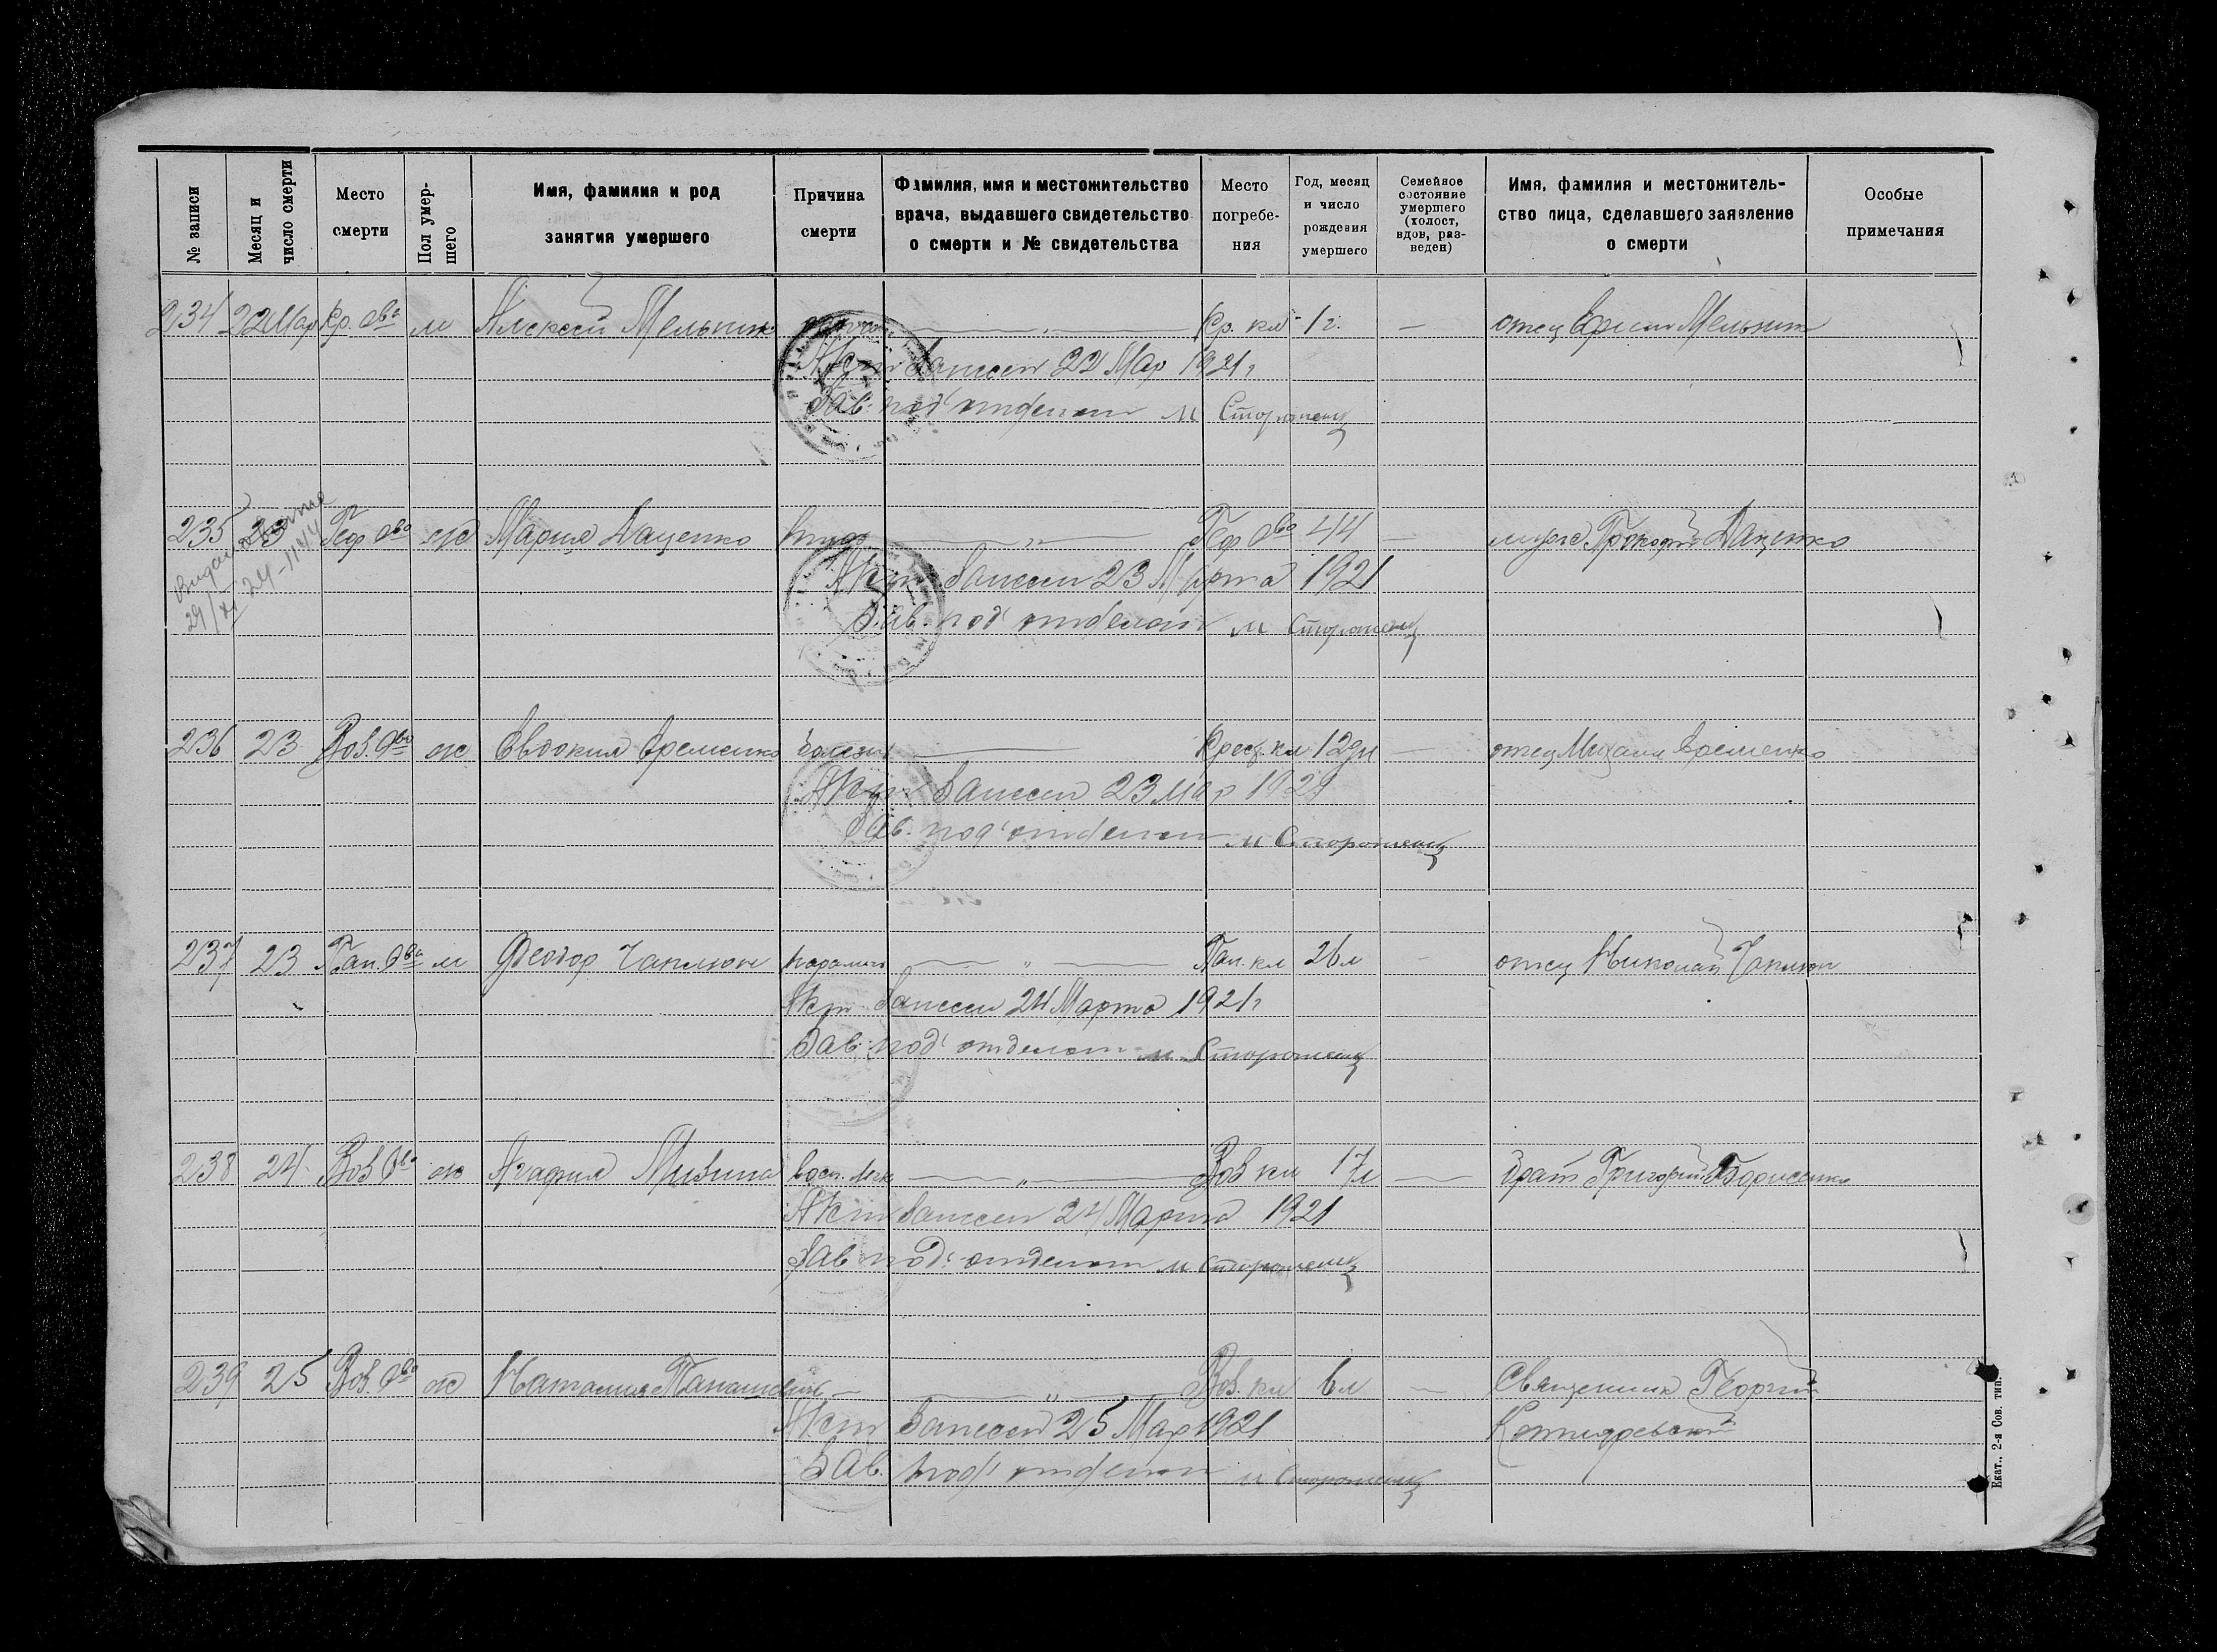 № записи
Месяц и число смерти
Место смерти
Пол умершего
Имя, фамилия и род занятия умершего
Причина смерти
Фамилия, имя и местожительство врача, выдавшего свидетельство о смерти и № свидетельства
Место погребения
Год, месяц и число рождения умершего
Семейное состояние умершего (холост, вдов, разведен)
Имя, фамилия и местожительство лица, сделавшего заявление о смерти
Особые примечания
234 22 Мар Кр. о-ва м Алексей Мельник — „ — Кр. кл 1 г. — отец Мельник
Акт записан 22 Мар 1921 г
Зав. под'отделом М Стороженко
235 23 о-во ж Мария Даценко — „ — о-во 44 — муж Прокофий Даценко
Акт записан 23 Марта 1921
Зав. под'отделом М Стороженко
236 23 Воз. о-во ж Евдокия Еременко болезнь — Крест. кл 12 дн — отец Михаил Еременко
Акт записан 23 мар 1921
Зав. под'отделом М Стороженко
237 23 Пан. о-ва м Феодор Чаплюк паралич — „ — Пан. кл 26 л — отец Николай Чаплюк
Акт записан 24 Марта 1921 г
Зав. под'отделом М Стороженко
238 24 Воз о-во ж Агафия восп. лег — „ — Воз кл 17 л — брат Григорий Борисенко
Акт записан 24 Марта 1921
Зав под'отделом М Стороженко
239 25 Воз. о-во ж Наталия — — „ — Воз. кл 6 л — Священник Георгий
Котляревский
Акт записан 25 Мар 1921
Зав. под'отделом М Стороженко
Екат., 2-я Сов. тип.